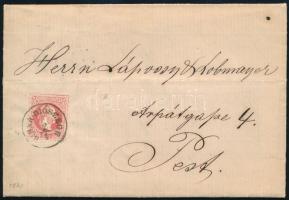 Herrn Láposy & Lobmayer
Arpátgaße 4.
Pest.